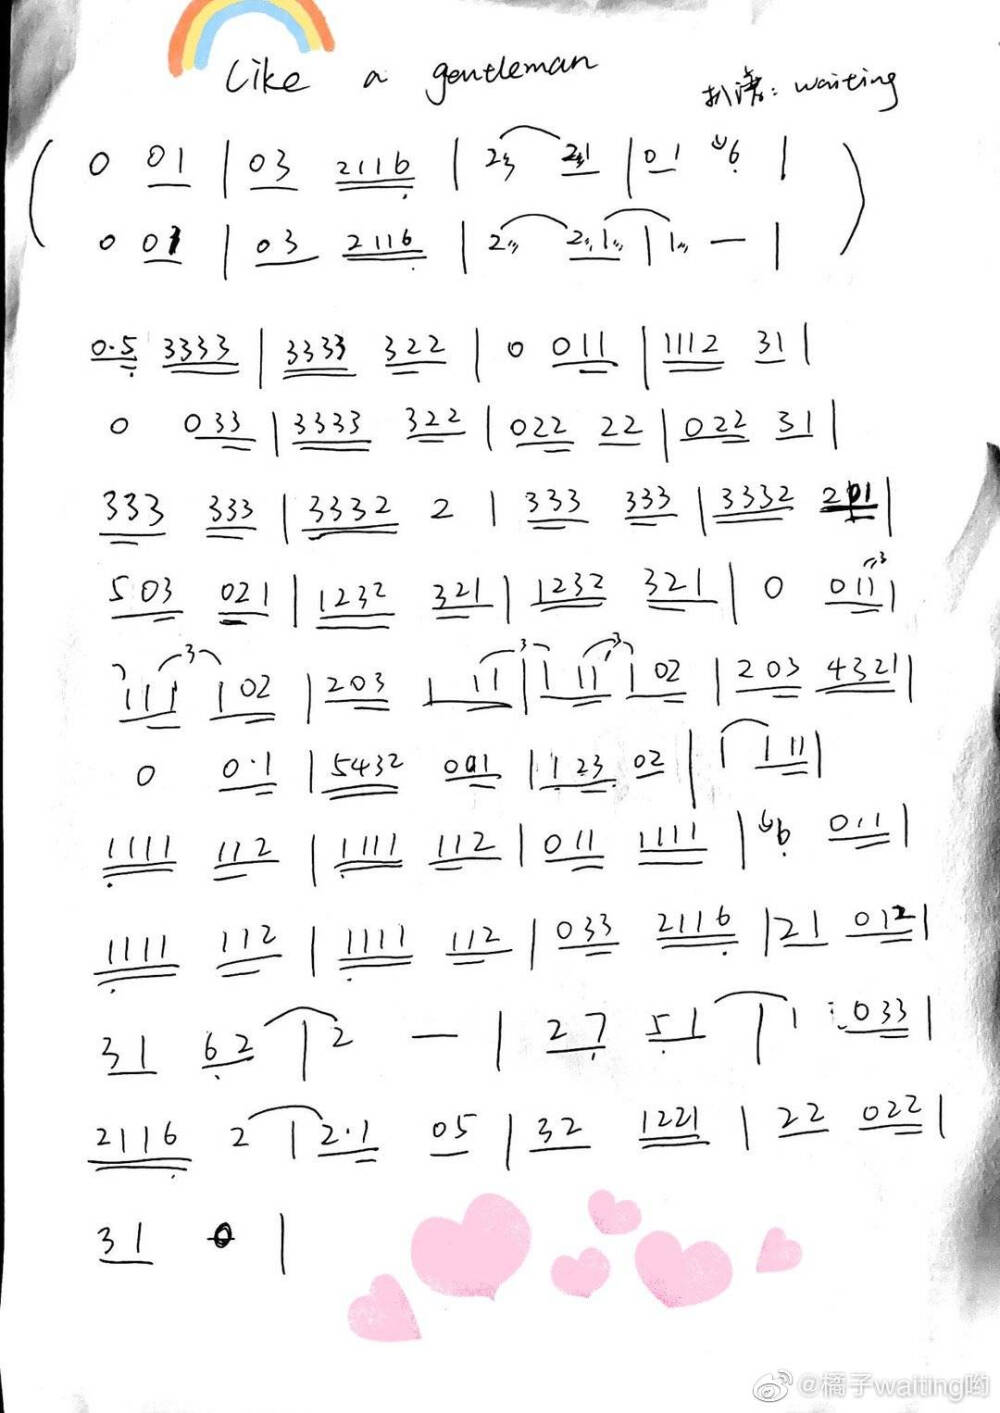 Like a gentleman
扒谱: waiting
( 0 01 | 03 2116 | 2 21 | 01 6 | )
0 01 | 03 2116 | 2 21 | 1 — |
0·5 3333 | 3333 322 | 0 011 | 1112 31 |
0 033 | 3333 322 | 022 22 | 022 31 |
333 333 | 3332 2 | 333 333 | 3332 201 |
503 021 | 1232 321 | 1232 321 | 0 011 |
111 102 | 203 111 | 111 102 | 203 4321 |
0 0·1 | 5432 001 | 123 02 | 1 111 |
1111 112 | 1111 112 | 011 1111 | 6 011 |
1111 112 | 1111 112 | 033 2116 | 21 012 |
31 62 | 2 — | 27 51 | 1 033 |
2116 2 | 2·1 05 | 32 1221 | 22 022 |
31 0 |
@橘子waiting哟